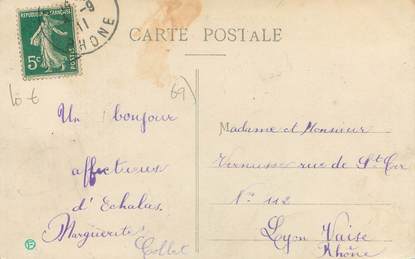 REPUBLIQUE FRANÇAISE
5c
POSTES
-9
11
RHONE
CARTE POSTALE
10 €
69)
Un bonjour
affectueux
d'Echalas.
Marguerite
Collet
Madame et Monsieur
rue de St Cyr
N° 112
Lyon Vaise
Rhône